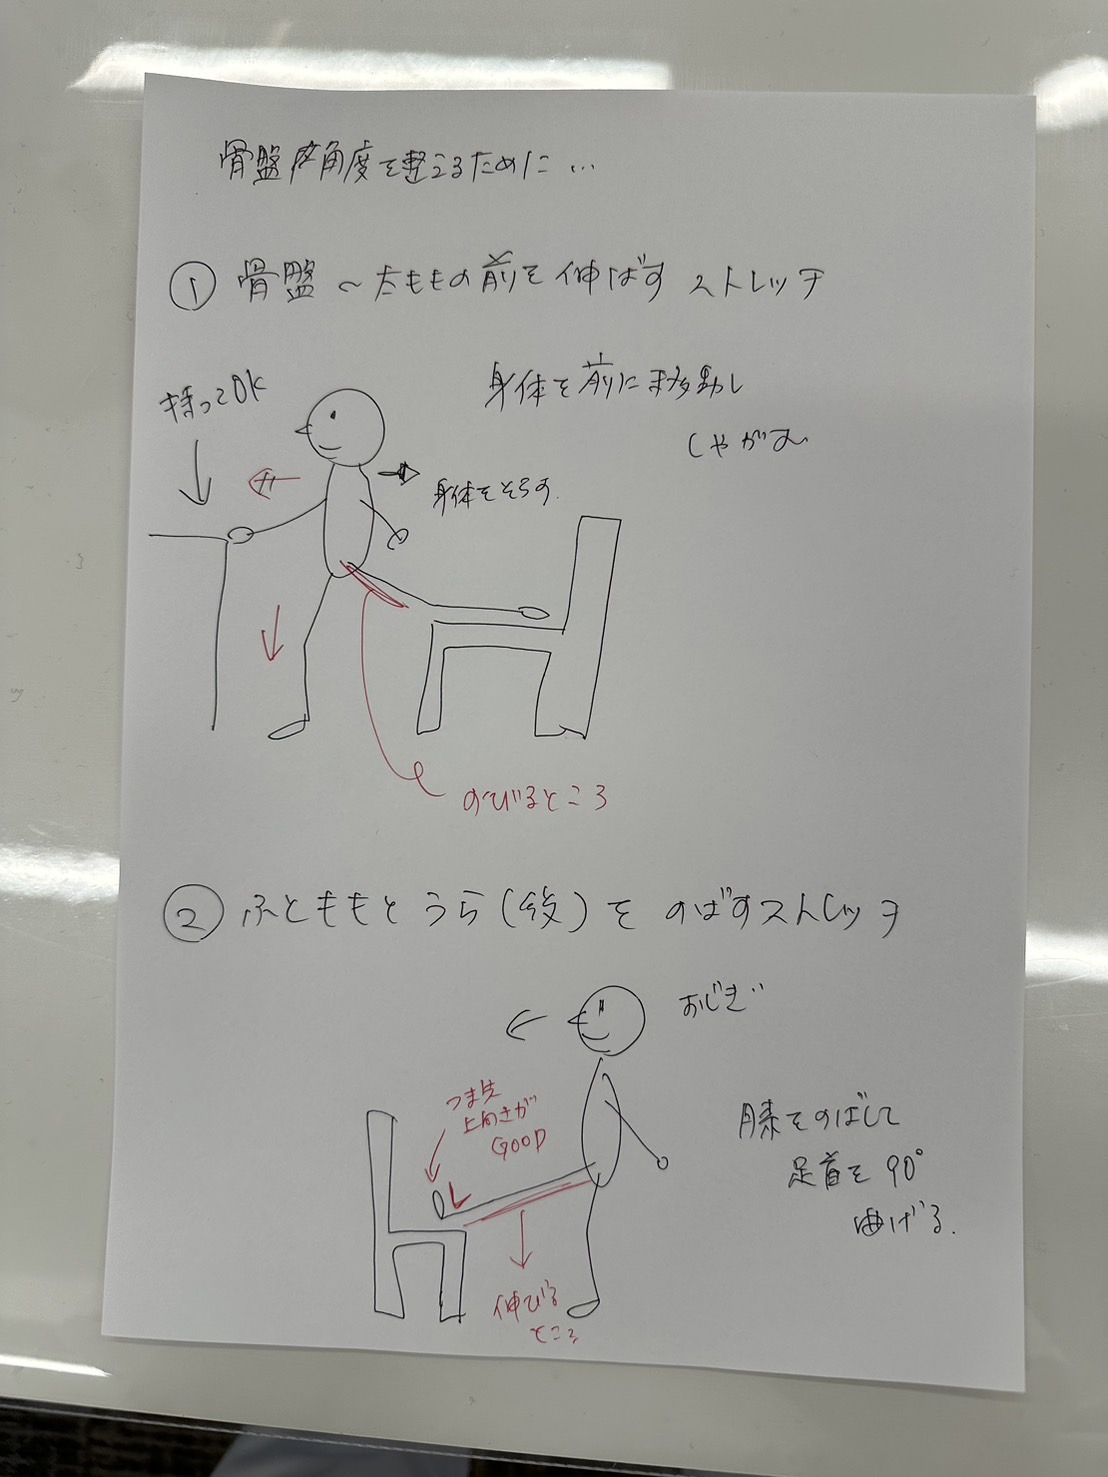 骨盤の角度を整えるために…
① 骨盤〜太ももの前を伸ばすストレッチ
持ってOK
身体を前に移動し
しゃがむ
身体をそらす.
のびるところ
② ふとももとうら(後)をのばすストレッチ
おじぎ
つま先
上向きが
GOOD
膝をのばして
足首を90°
曲げる.
伸びる
ところ